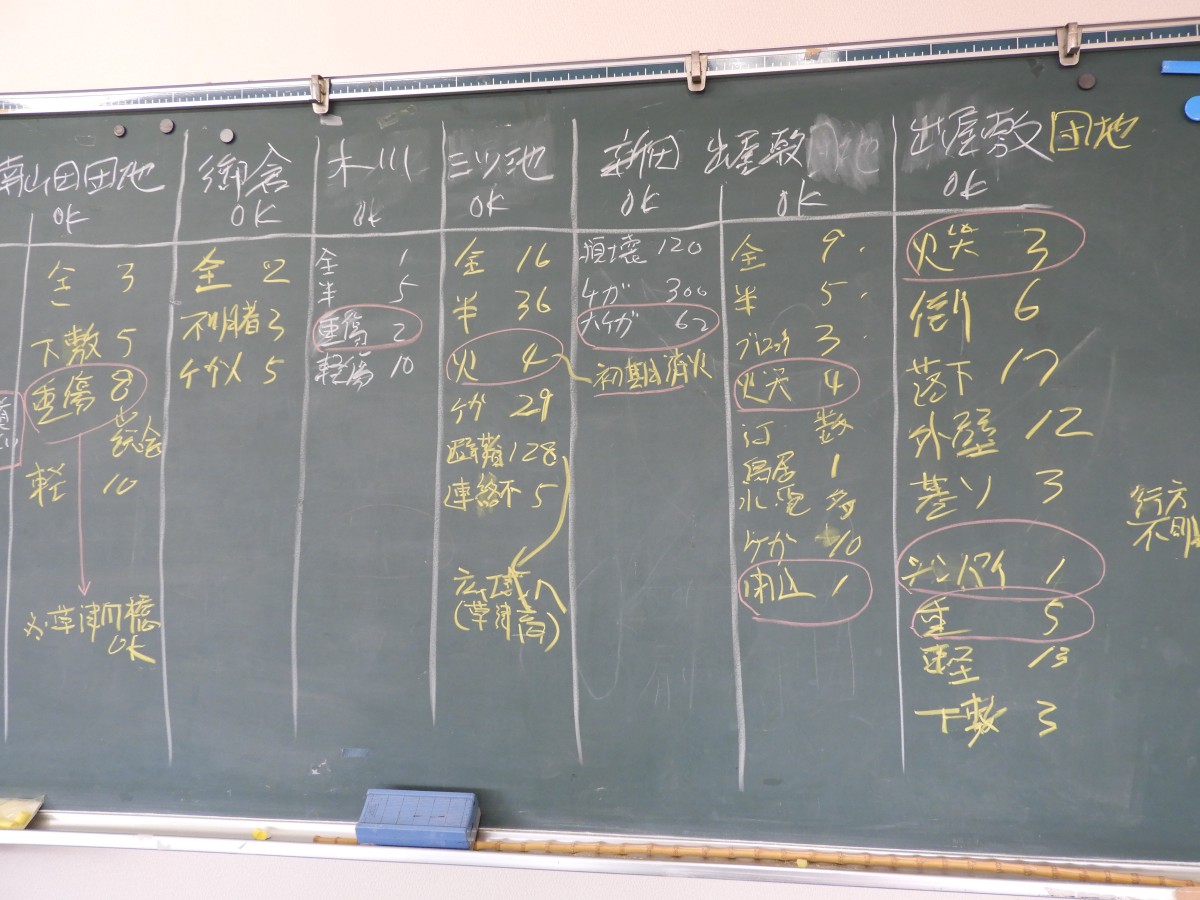 南山田団地
OK
全 3
下敷 5
重傷 8
軽 10
OK
御倉
OK
全 2
不明者 3
ケガ人 5
木川
OK
全 1
半 5
重傷 2
軽傷 10
三ツ池
OK
全 16
半 36
火 4
ケガ 29
避難 128
連絡不 5
広域へ
(草津高)
新田
OK
倒壊 120
ケガ 300
大ケガ 62
初期消火
出屋敷
OK
全 9
半 5
ブロック 3
火災 4
数
鳥居 1
水電 多
ケガ 10
閉込 1
出屋敷団地
OK
火災 3
倒 6
落下 17
外壁 12
基ソ 3
シンパイ 1
重 5
軽 13
下敷 3
行方
不明